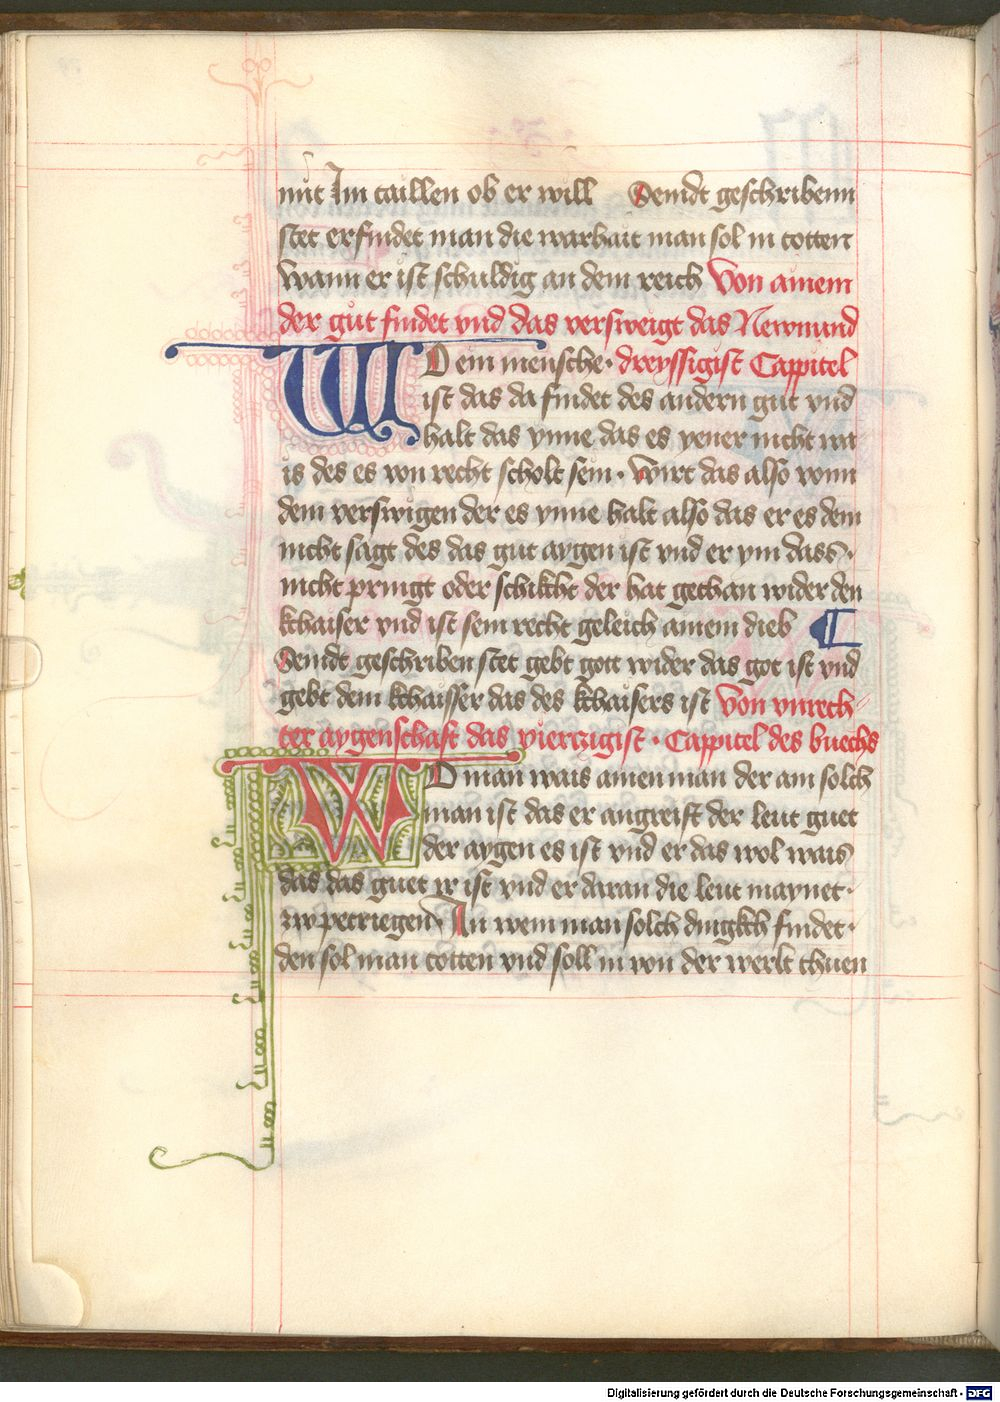 mit Im taillen ob er will Seindt geschribenn
stet erfindet man die warhait man sol in totten
Wann er ist schuldig an dem reich Von ainem
der gůt findet vnd das versweigt das Newnund
WO ein mensche · dreyssigist Cappitel
ist das da findet des andern gut vnd
halt das ynne das es yener nicht wa
is des es von recht scholt sein · Wirt das also vonn
dem verswigen der es ynne halt also das er es dem
nicht sagt des das gut aygen ist vnd er ym dass ·
nicht pringt oder schikht der hat gethan wider den
khaiser vnd ist sein recht geleich ainem dieb
Seindt geschriben stet gebt gott wider das got ist vnd
gebt dem khaisser das des khaisers ist Von vnrech-
ter aygenschaft das vierzigist · Cappitel des buechs
WO man wais ainen man der ain solch
man ist das er angreift der leut guet
der aygen es ist vnd er das wol wais
das das guet ir ist vnd er daran die leut maynet ·
zw petriegen · An wem man solch dingkh findet ·
den sol man totten vnd soll in von der werlt thuen
Digitalisierung gefördert durch die Deutsche Forschungsgemeinschaft - DFG